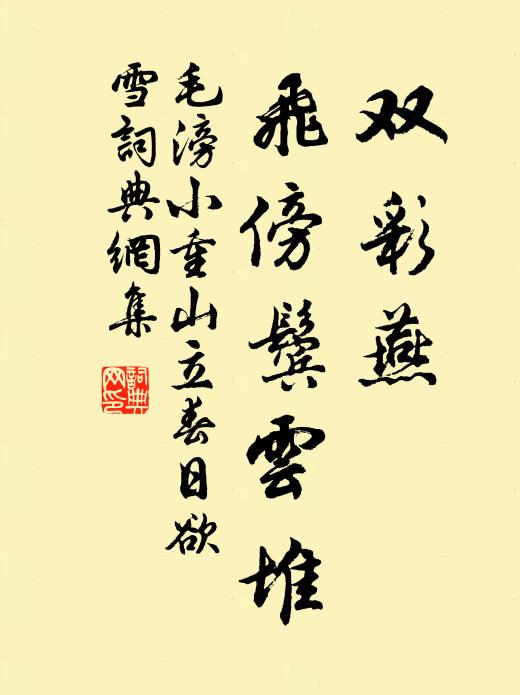 双彩燕
飛傍鬢雲堆
毛滂小重山立春日欲
雪詞典網集
詞典
网印